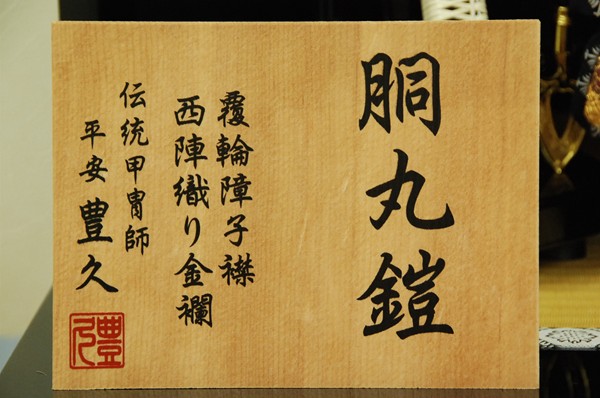 胴丸鎧
覆輪障子襟
西陣織り金襴
伝統甲冑師
平安豊久